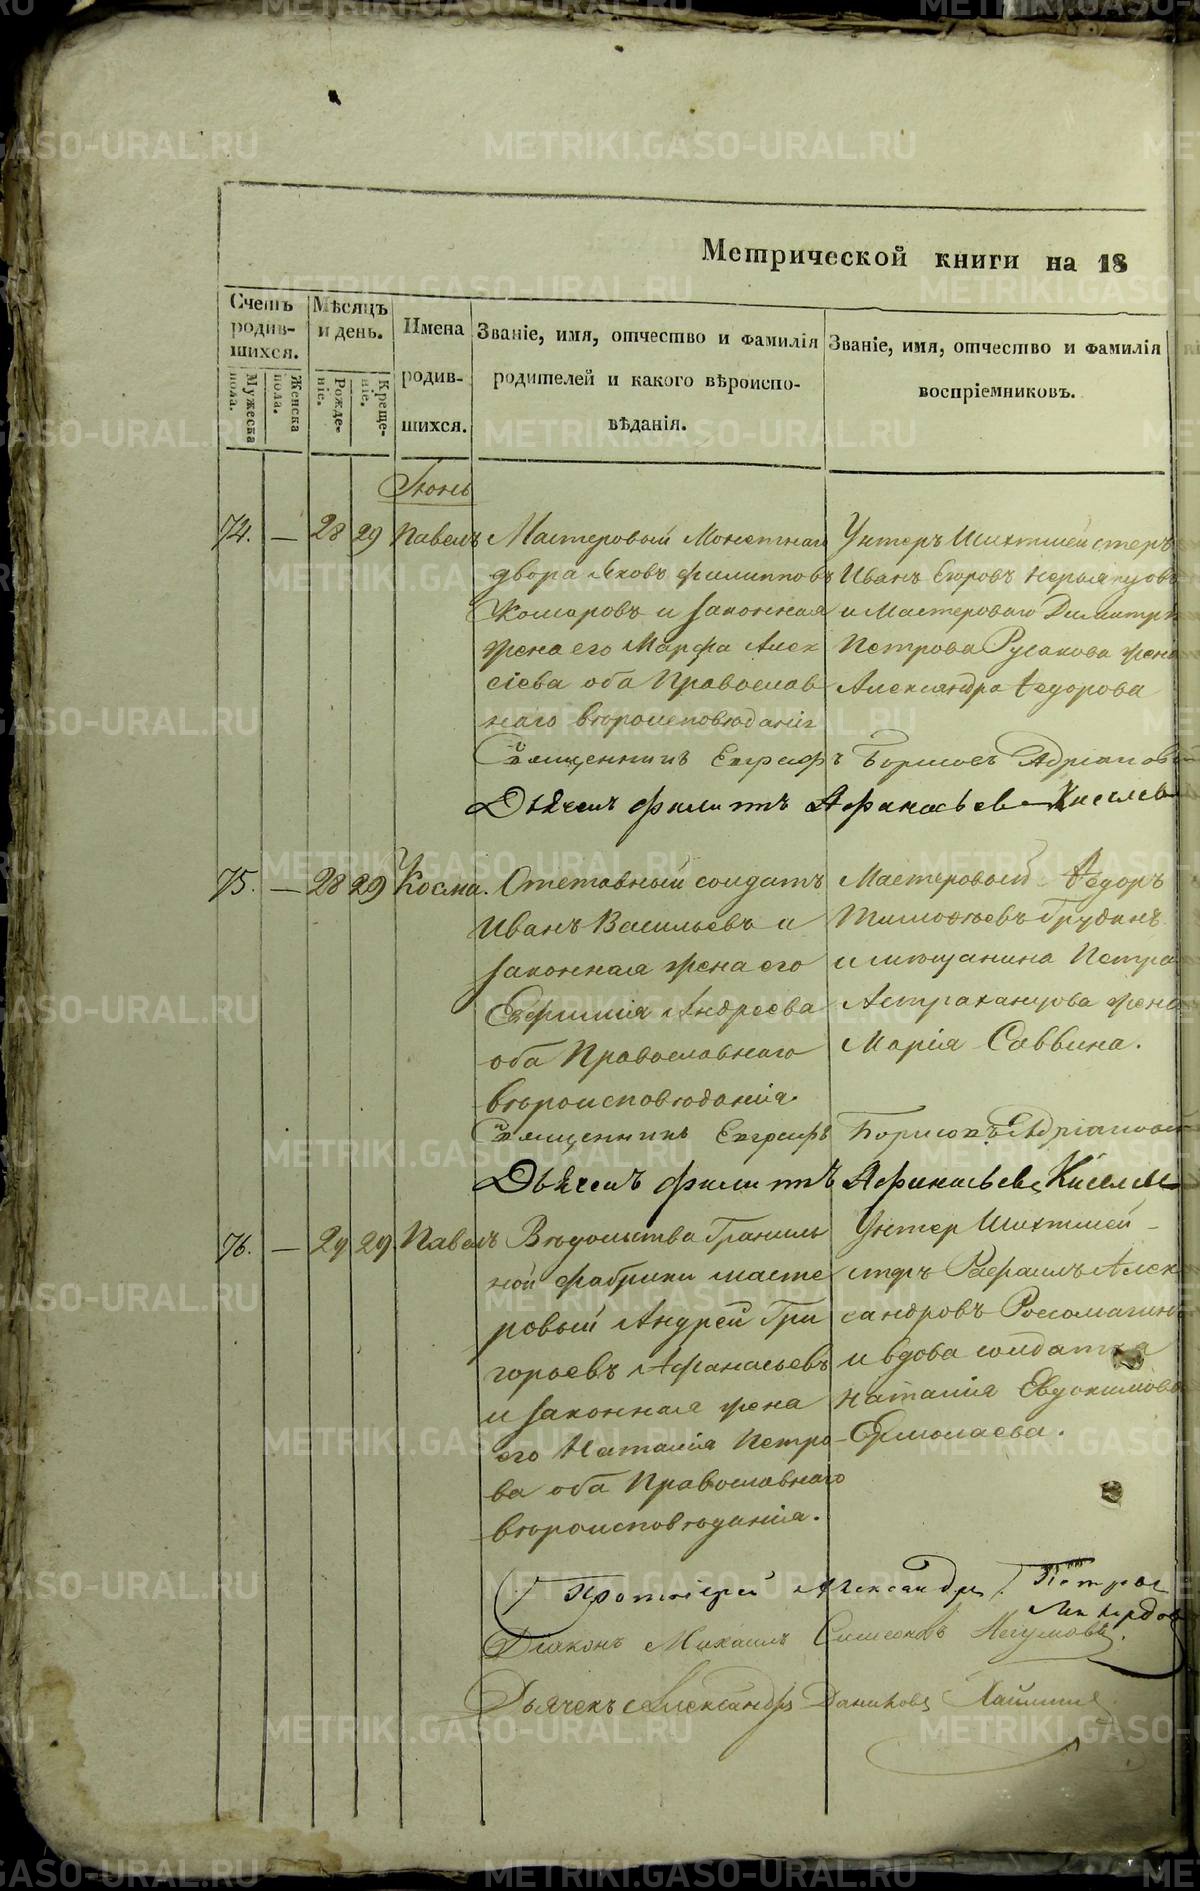 Метрической книги на 18
Счетъ родив- шихся.
Мужеска пола.
Женска пола.
Мѣсяцъ и день.
Рожде- ніе.
Креще- ніе.
Имена родив- шихся.
Званіе, имя, отчество и фамилія родителей и какого вѣроиспо- вѣданія.
Званіе, имя, отчество и фамилія воспріемниковъ.
Іюнь
74. — 28 29 Павелъ
Мастеровой Монетнаго
двора Яковъ Филипповъ
Комаровъ и законная
жена его Марфа Алек
сіева оба Православ
наго вѣроисповѣданія
Унтеръ Шихтмейстеръ
Иванъ Егоровъ
и Мастероваго Димитрія
Петрова Русакова жена
Александра Ѳедорова
Священникъ Евграфъ Борисовъ Адріановъ
Дьячекъ Филиппъ Афанасьевъ Киселевъ
75. — 28 29 Косма.
Отставный солдатъ
Иванъ Васильевъ и
законная жена его
Евфимія Андреева
оба Православнаго
вѣроисповѣданія.
Мастеровой Ѳедоръ
Тимоѳеевъ Грудинъ
и мѣщанина Петра
Астраханцова жена
Марія Саввина.
Священникъ Евграфъ Борисовъ Адріановъ
Дьячекъ Филиппъ Афанасьевъ Киселевъ
76. — 29 29. Павелъ
Вѣдомства Граниль
ной фабрики масте
ровый Андрей Гри
горьевъ Афанасьевъ
и законная жена
его Наталія Петро
ва оба Православнаго
вѣроисповѣданія.
Унтер Шихтмей-
стръ Рафаилъ Алек
сандровъ Россомагинъ
и вдова солдатка
Наталія Евдокимова
Ермолаева.
Протоіерей Александръ Петровъ
Діаконъ Михаилъ Симеоновъ
Дьячекъ Александръ Даниловъ
METRIKI.GASO-URAL.RU